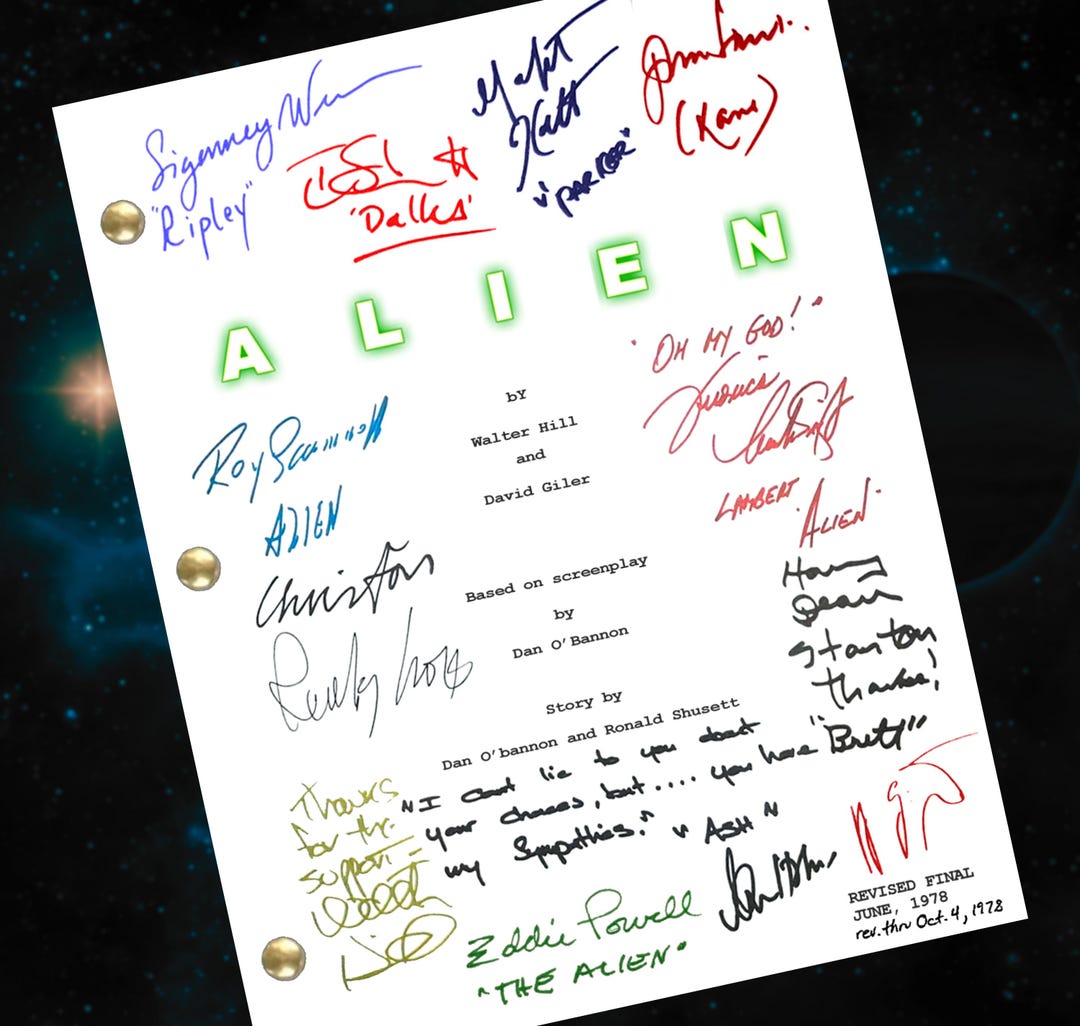 Sigourney
"Ripley"
'Dallas'
Yaphet
Kotto
"PARKER"
John Hurt
(Kane)
ALIEN
"OH MY GOD!"
Veronica
Cartwright
LAMBERT
"ALIEN"
by
Walter Hill
and
David Giler
Roy Scammell
ALIEN
Based on screenplay
by
Dan O'Bannon
Harry
Dean
Stanton
Thanks!
"Brett"
Story by
Dan O'bannon and Ronald Shusett
Ridley Scott
Thanks
for the
support -
"I cant lie to you about
your chances, but.... you have
my sympathies." "ASH"
Eddie Powell
"THE ALIEN"
REVISED FINAL
JUNE, 1978
rev. thru Oct. 4, 1978